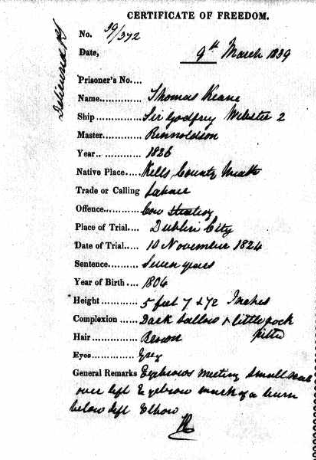 CERTIFICATE OF FREEDOM.
No. 39/372
Date, 9th March 1839
Prisoner's No....
Name............. Thomas Keane
Ship............... Sir Godfrey Webster 2
Master............ Rennoldson
Year.. ............ 1826
Native Place..... Kells County Meath
Trade or Calling
Offence........... Cow Stealing
Place of Trial.... Dublin City
Date of Trial..... 10 November 1824
Sentence.......... Seven years
Year of Birth.... 1806
Height............ 5 feet 7 & 1/2 Inches
Complexion ...... Dark Sallow & little pock
pitted
Hair ............... Brown
Eyes............... Grey
General Remarks Eyebrows meeting small scar
over left Eyebrow mark of a burn
below left Elbow